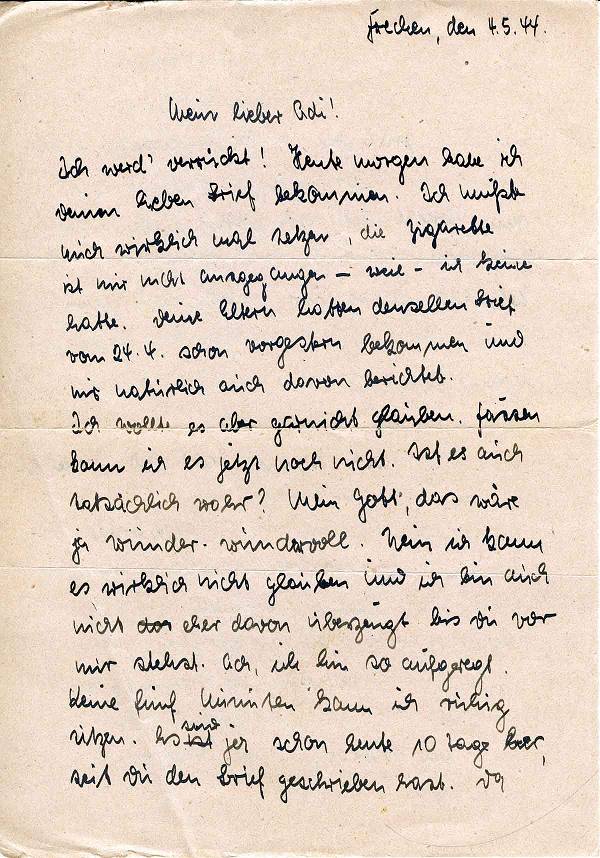 Frechen, den 4.5.44.
Mein lieber Adi!
Ich werd' verrückt! Heute morgen habe ich
deinen lieben Brief bekommen. Ich mußte
mich wirklich mal setzen, die Zigarette
ist mir nicht ausgegangen – weil – ich keine
hatte. Deine Eltern hatten denselben Brief
vom 24.4. schon vorgestern bekommen und
mir natürlich auch davon berichtet.
Ich wollte es aber garnicht glauben. Fassen
kann ich es jetzt noch nicht. Ist es auch
tatsächlich wahr? Mein Gott, das wäre
ja wunder-wundervoll. Nein ich kann
es wirklich nicht glauben und ich bin auch
nicht eher davon überzeugt bis Du vor
mir stehst. Ach, ich bin so aufgeregt.
Keine fünf Minuten kann ich ruhig
sitzen. Es sind ja schon heute 10 Tage her,
seit Du den Brief geschrieben hast. Da